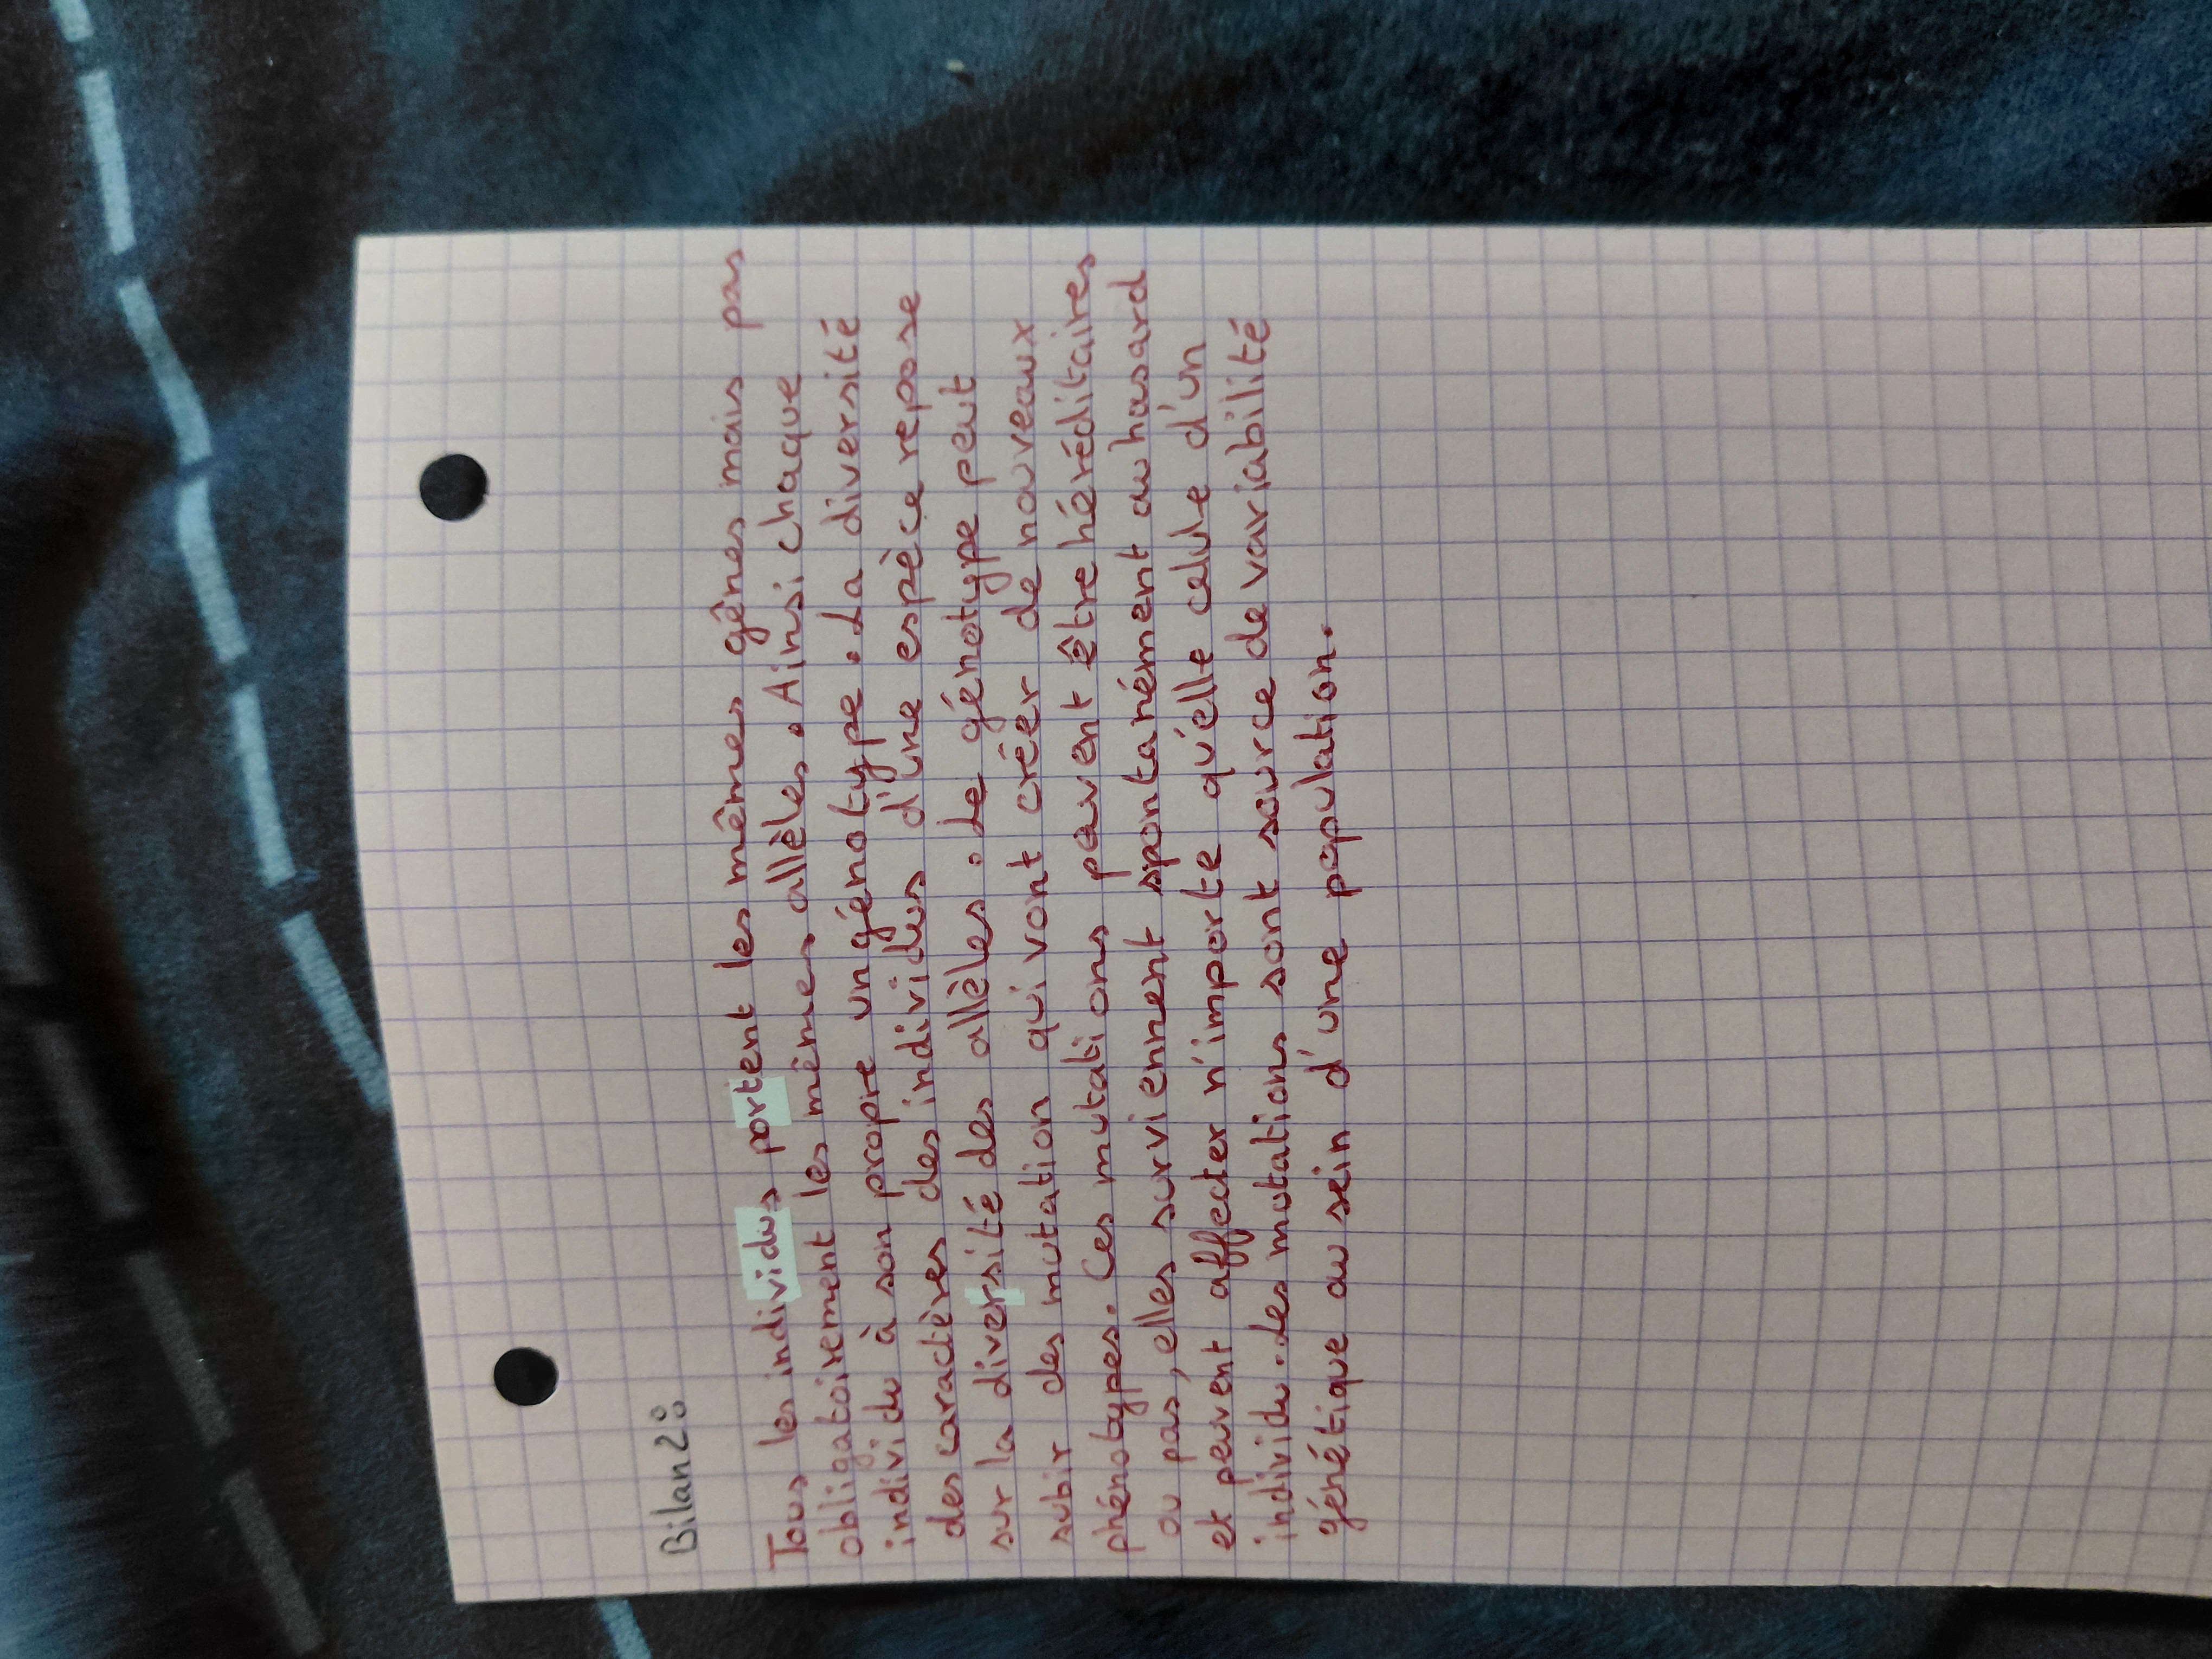 Bilan 2:
Tous les individus portent les mêmes gênes mais pas
obligatoirement les mêmes allèles. Ainsi chaque
individu à son propre un génotype. La diversité
des caractères des individus d'une espèce repose
sur la diversité des allèles. Le génotype peut
subir des mutation qui vont créer de nouveaux
phénotypes. Ces mutations peuvent être héréditaires
ou pas, elles surviennent spontanément au hasard
et peuvent affecter n'importe qu'elle celule d'un
individu. Les mutations sont source de variabilité
génétique au sein d'une population.